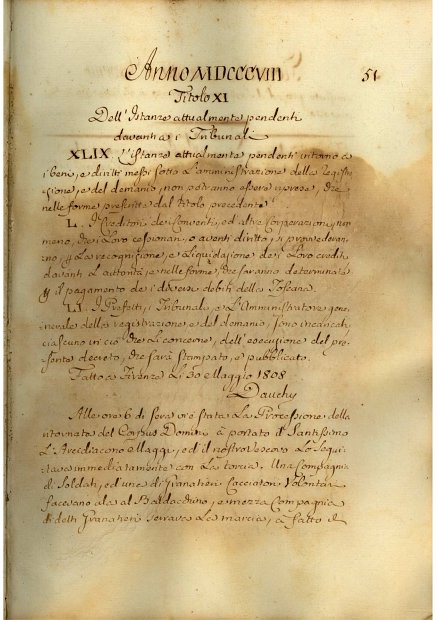 Anno MDCCCVIII 51
Titolo XI
Dell'Istanze attualmente pendenti
davanti a i Tribunali
XLIX. L'istanze attualmente pendenti intorno a
i beni, e diritti messi sotto l'amministrazione della registra
zione, e del demanio, non potranno essere riprese, che
nelle forme prescritte dal titolo precedente.
L. I Creditori dei Conventi, ed altre Corporazioni, non
meno, che i loro cessionarj, o aventi diritto, si provederan
no per la recognizione, e liquidazione dei loro crediti
davanti l'autorità, e nelle forme, che saranno determinate
per il pagamento dei diversi debiti della Toscana.
LI. I Prefetti, i Tribunali, e l'Amministratore gene
nerale della registrazione, e del demanio, sono incaricati
ciascuno in ciò che li concerne, dell'esecuzione del pre
sente decreto, che sarà stampato, e pubblicato.
Fatto a Firenze li 30 Maggio 1808
Dauchy
Alle ore 6 di sera vi è stata la Processione della
ritornata del Corpus Domini à portato il Santissimo
L'Arcidiacono Maggi, ed il nostro Vescovo lo segui
tava immediatamente con la torcia. Una Compagnia
di Soldati, ed una di Granatieri Cacciatori Volontari
facevano ala al Baldacchino, e mezza Compagnia
di detti Granatieri serrava la marcia, à fatto il